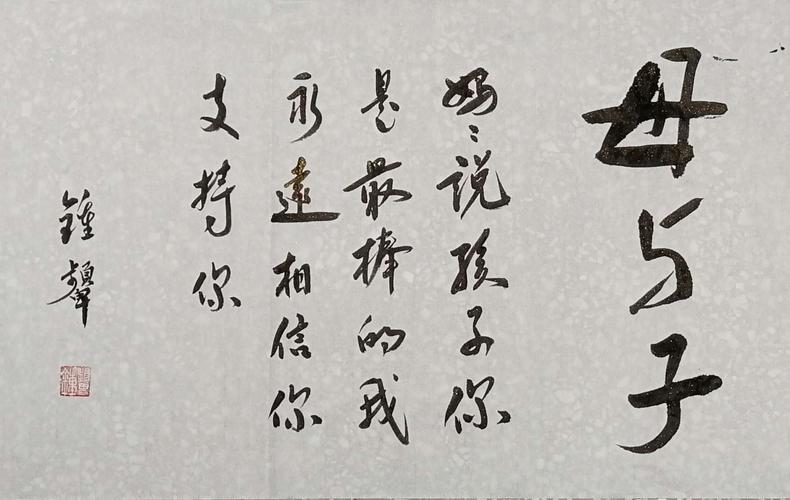 母与子
妈々说孩子你
是最棒的我
永远相信你
支持你